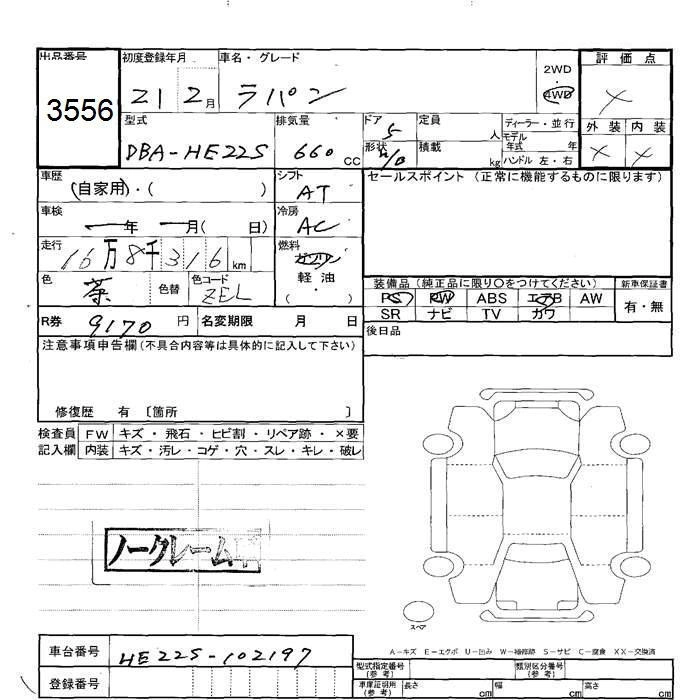 出品番号 初度登録年月 車名・グレード 2WD・4WD 評価点
3556 21 2月 ラパン ×
型式 排気量 ドア 定員 ディーラー・並行 外装 内装
DBA-HE22S 660cc 5 人 モデル年式 年 × ×
形状 H/B 積載 kg ハンドル 左・右
車歴 (自家用)・( ) シフト AT セールスポイント (正常に機能するものに限ります)
車検 年 月( 日) 冷房 AC
走行 16万8千316km 燃料 ガソリン
軽油
・( )
色 茶 色替 色コード ZEL
装備品(純正品に限り○をつけてください) 新車保証書
PS PW ABS エアB AW 有・無
SR ナビ TV カワ
R券 9170円 名変期限 月 日 後日品
注意事項申告欄(不具合内容等は具体的に記入して下さい)
修復歴 有 〔箇所 〕
検査員 FW キズ・飛石・ヒビ割・リペア跡・×要
記入欄 内装 キズ・汚レ・コゲ・穴・スレ・キレ・破レ
ノークレーム
スペア
A-キズ E-エクボ U-凹み W-補修跡 S-サビ C-腐食 XX-交換済
車台番号 HE22S-102197
型式指定番号(参考) 類別区分番号(参考)
登録番号 車庫証明用(参考) 長さ cm 幅 cm 高さ cm